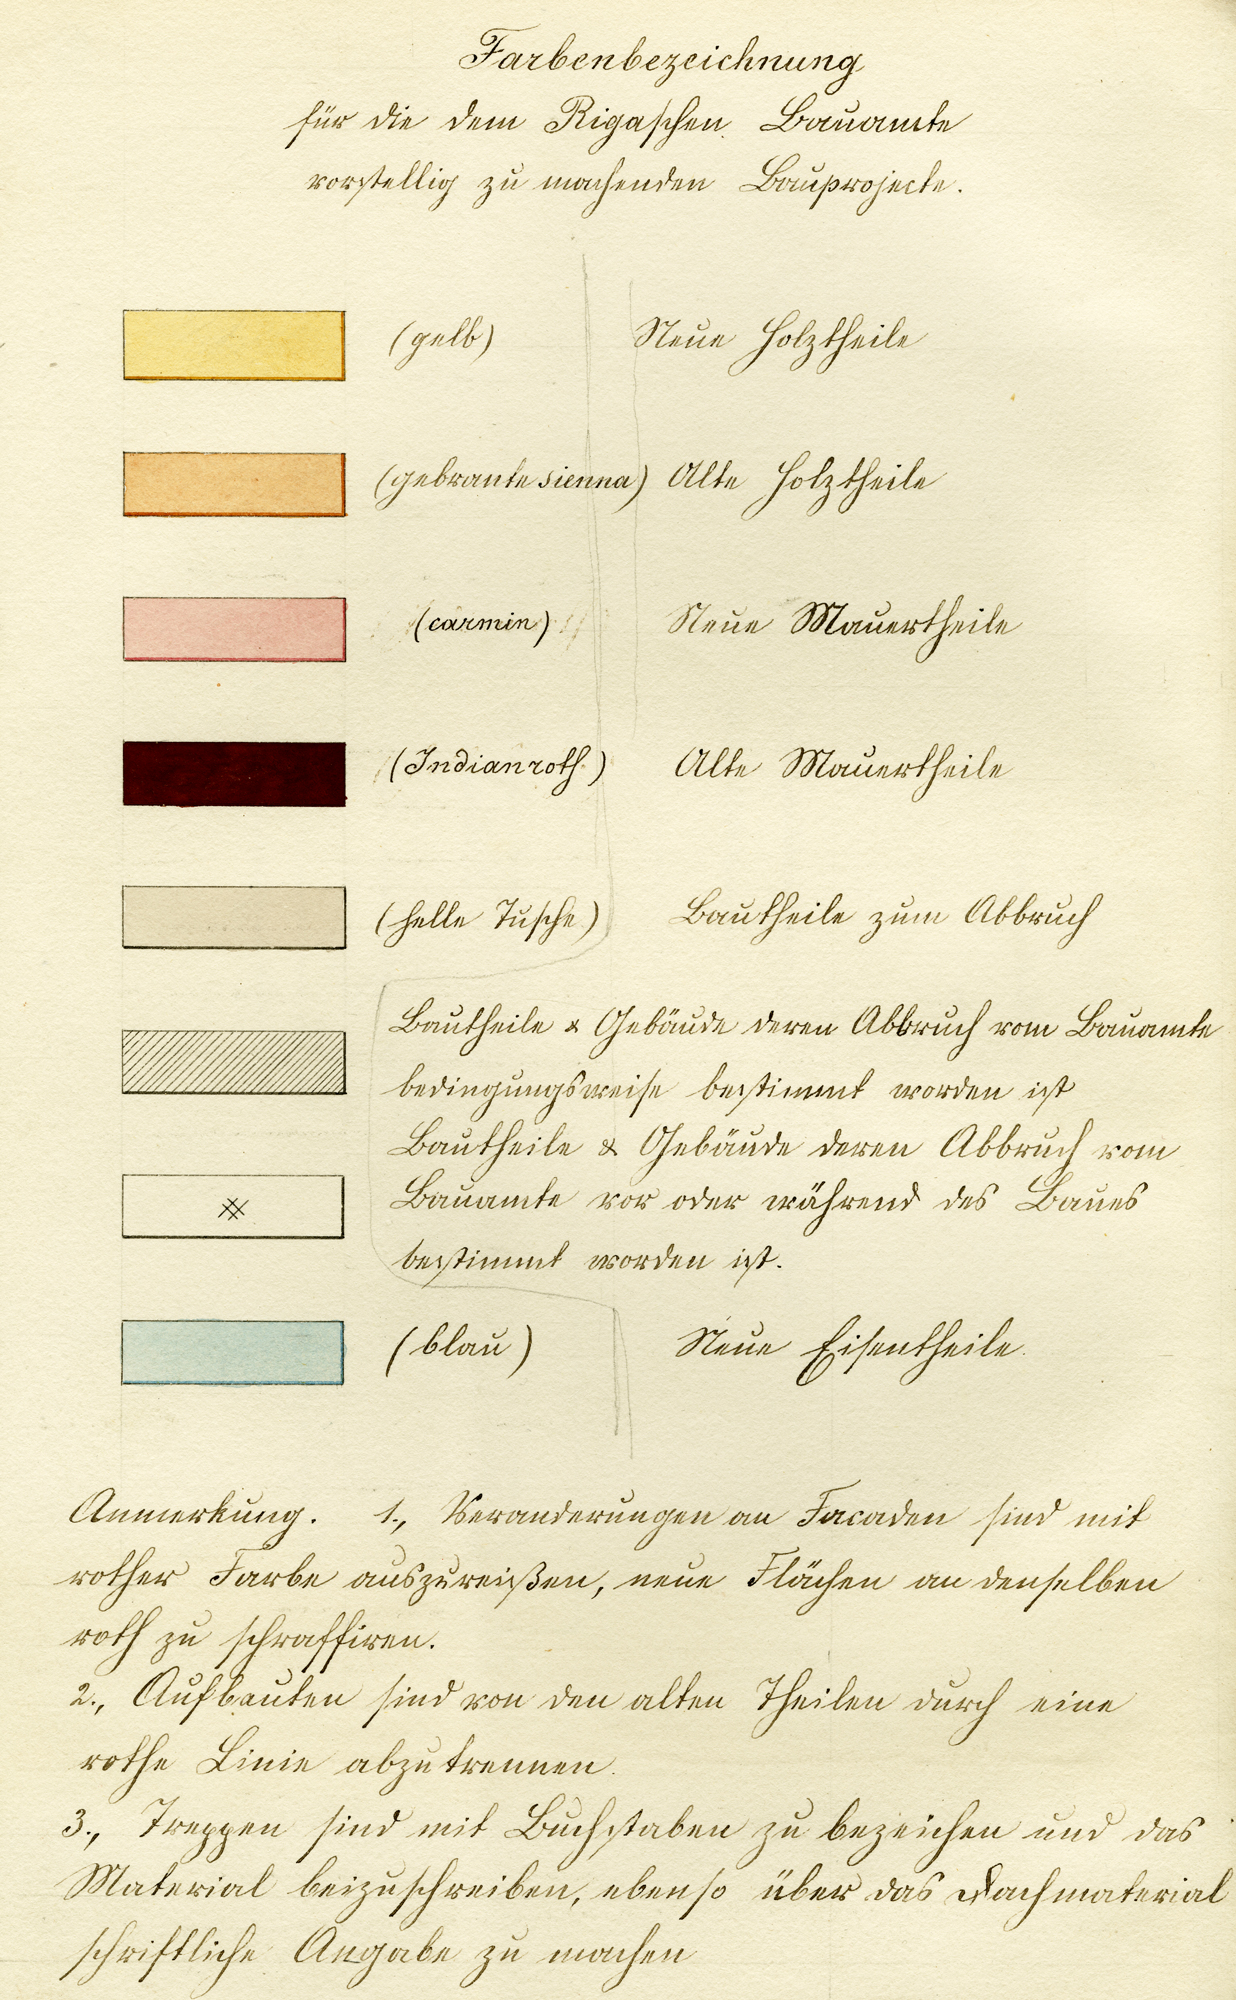 Farbenbezeichnung
für die dem Rigaschen Bauamte
vorstellig zu machenden Bauprojecte.
(gelb) Neue Holztheile
(gebrante sienna) Alte Holztheile
(carmin) Neue Mauertheile
(Indianroth) Alte Mauertheile
(helle Tusche) Bautheile zum Abbruch
Bautheile & Gebäude deren Abbruch vom Bauamte
bedingungsweise bestimmt worden ist
Bautheile & Gebäude deren Abbruch vom
Bauamte vor oder während des Baues
bestimmt worden ist.
(blau) Neue Eisentheile.
Anmerkung. 1., Veranderungen an Facaden sind mit
rother Farbe auszureißen, neue Flächen an denselben
roth zu schraffiren.
2., Aufbauten sind von den alten Theilen durch eine
rothe Linie abzutrennen.
3., Treppen sind mit Buchstaben zu bezeichen und das
Material beizuschreiben, ebenso über das Dachmaterial
schriftliche Angabe zu machen